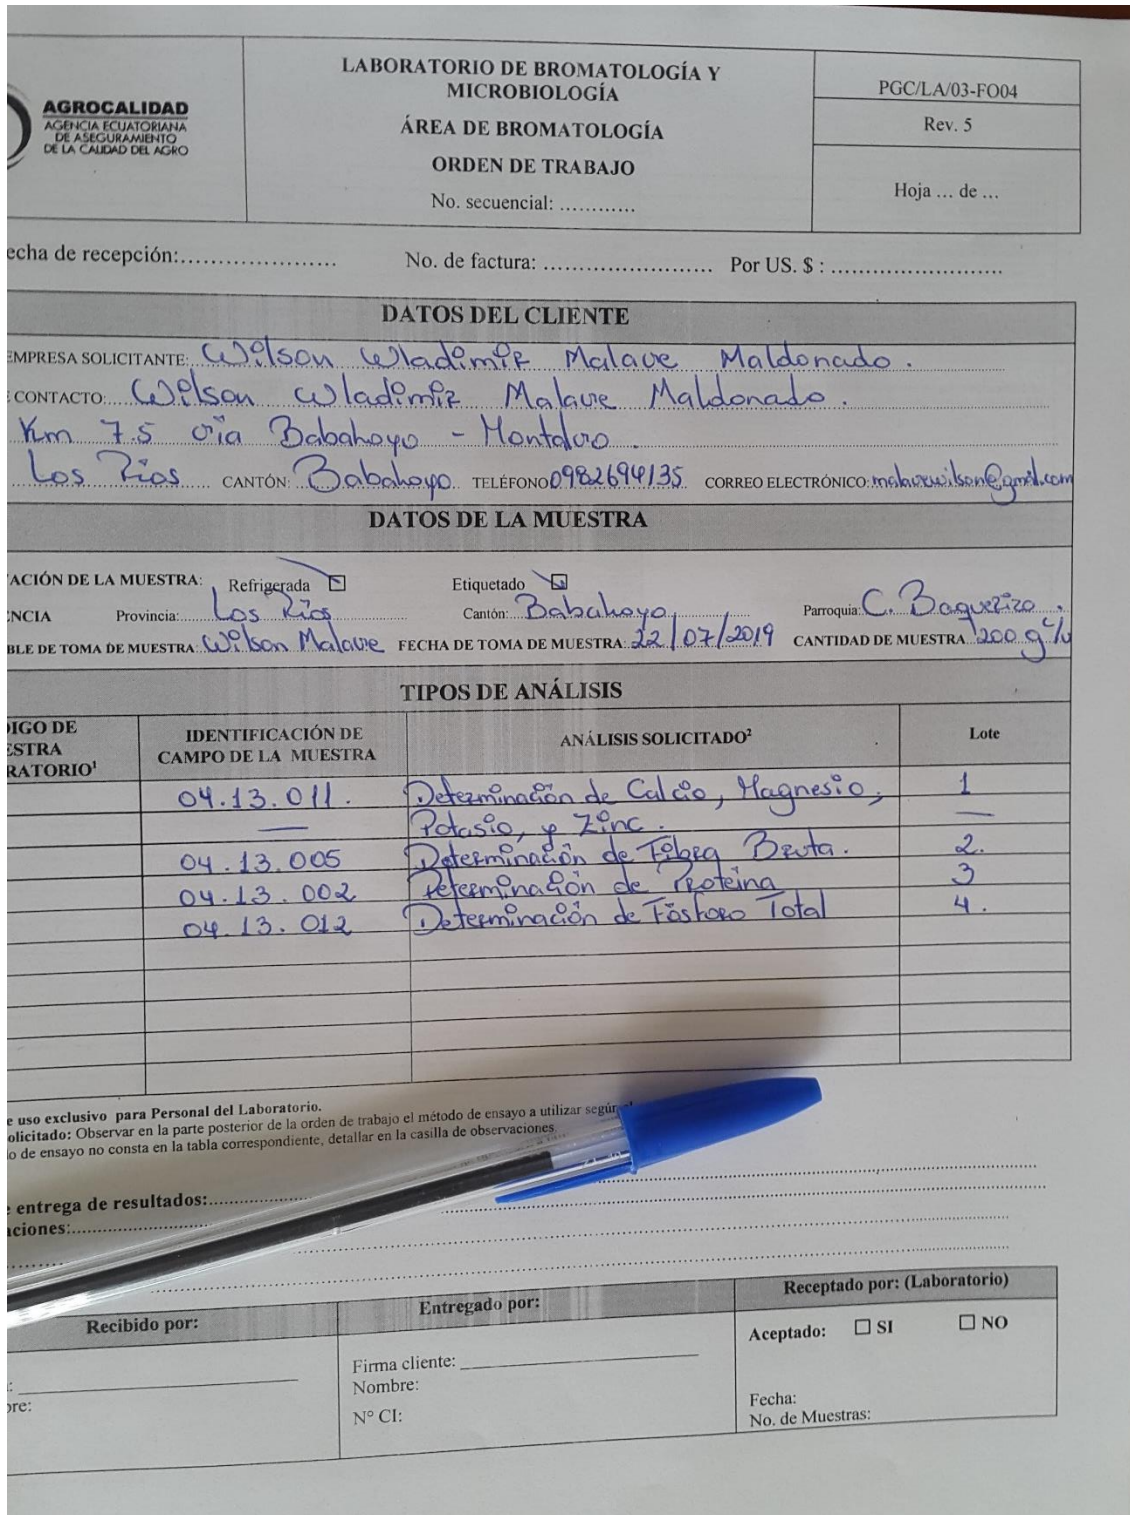 AGROCALIDAD
AGENCIA ECUATORIANA
DE ASEGURAMIENTO
DE LA CALIDAD DEL AGRO
LABORATORIO DE BROMATOLOGÍA Y
MICROBIOLOGÍA
ÁREA DE BROMATOLOGÍA
ORDEN DE TRABAJO
No. secuencial: ............
PGC/LA/03-FO04
Rev. 5
Hoja ... de ...
echa de recepción:..................... No. de factura: ........................ Por US. $ : ........................
DATOS DEL CLIENTE
EMPRESA SOLICITANTE: Wilson Wladimir Malave Maldonado.
CONTACTO: Wilson Wladimir Malave Maldonado.
Km 7.5 via Babahoyo - Montalvo.
Los Rios CANTÓN: Babahoyo TELÉFONO 0982694135 CORREO ELECTRÓNICO: malavewilson@gmail.com
DATOS DE LA MUESTRA
ACIÓN DE LA MUESTRA: Refrigerada Etiquetado
ENCIA Provincia: Los Rios Cantón: Babahoyo Parroquia: C. Baquerizo.
BLE DE TOMA DE MUESTRA: Wilson Malave FECHA DE TOMA DE MUESTRA: 22/07/2019 CANTIDAD DE MUESTRA 200 g c/u
TIPOS DE ANÁLISIS
DIGO DE
ESTRA
RATORIO¹
IDENTIFICACIÓN DE
CAMPO DE LA MUESTRA
ANÁLISIS SOLICITADO²
Lote
04.13.011. Determinación de Calcio, Magnesio, 1
— Potasio, y Zinc. —
04.13.005 Determinación de Fibra Bruta. 2.
04.13.002 Determinación de Proteina 3
04.13.012 Determinación de Fósforo Total 4.
e uso exclusivo para Personal del Laboratorio.
olicitado: Observar en la parte posterior de la orden de trabajo el método de ensayo a utilizar según
o de ensayo no consta en la tabla correspondiente, detallar en la casilla de observaciones.
entrega de resultados:
aciones:
Recibido por:
bre:
Entregado por:
Firma cliente:
Nombre:
N° CI:
Receptado por: (Laboratorio)
Aceptado: ☐ SI ☐ NO
Fecha:
No. de Muestras: